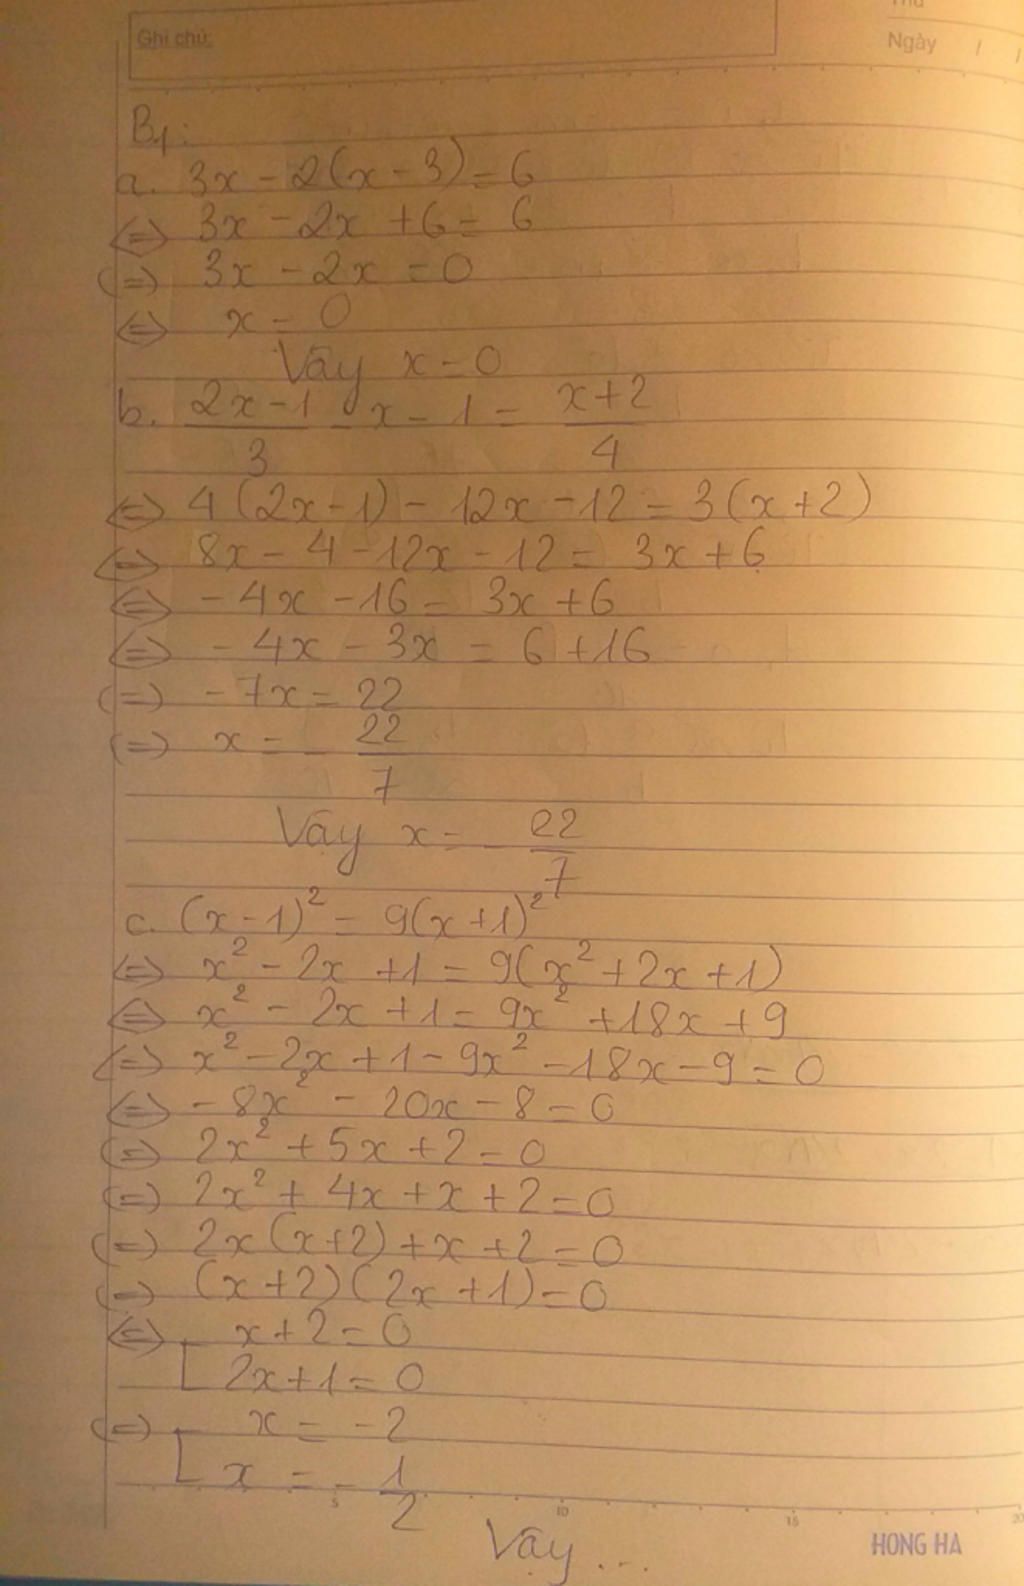 Thứ
Ghi chú:
Ngày / /
B1:
a. 3x - 2(x - 3) = 6
<=> 3x - 2x + 6 = 6
(=) 3x - 2x = 0
<=> x = 0
Vậy x = 0
b. \frac{2x - 1}{3} - x - 1 = \frac{x + 2}{4}
<=> 4(2x - 1) - 12x - 12 = 3(x + 2)
<=> 8x - 4 - 12x - 12 = 3x + 6
<=> - 4x - 16 = 3x + 6
<=> - 4x - 3x = 6 + 16
(=) - 7x = 22
(=) x = - \frac{22}{7}
Vậy x = - \frac{22}{7}
c. (x - 1)² = 9(x + 1)²
<=> x² - 2x + 1 = 9(x² + 2x + 1)
<=> x² - 2x + 1 = 9x² + 18x + 9
<=> x² - 2x + 1 - 9x² - 18x - 9 = 0
<=> - 8x² - 20x - 8 = 0
(=) 2x² + 5x + 2 = 0
(=) 2x² + 4x + x + 2 = 0
(=) 2x(x + 2) + x + 2 = 0
(=) (x + 2)(2x + 1) = 0
<=> [ x + 2 = 0
2x + 1 = 0
(=) [ x = - 2
x = - \frac{1}{2}
5 10 15 20
Vậy ...
HONG HA